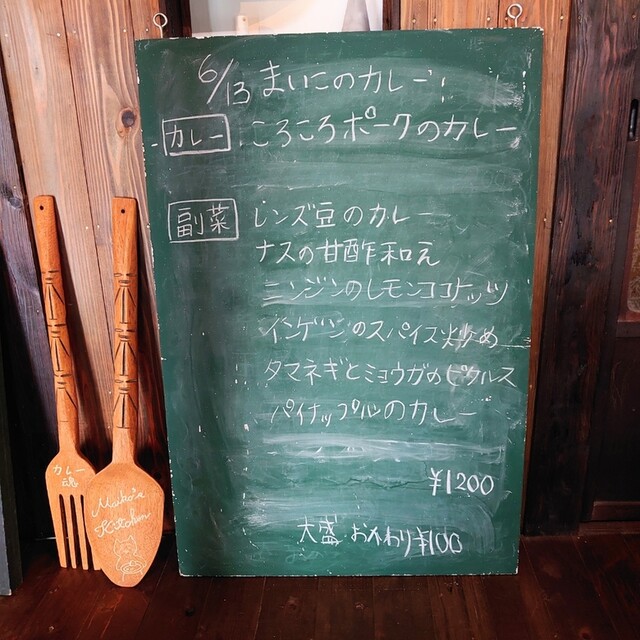 6/13 まいこのカレー
カレー ころころポークのカレー
副菜 レンズ豆のカレー
ナスの甘酢和え
ニンジンのレモンココナッツ
インゲンのスパイス炒め
タマネギとミョウガのピクルス
パイナップルのカレー
¥1200
大盛 おかわり¥100
カレー
魂
Maiko's
Kitchen